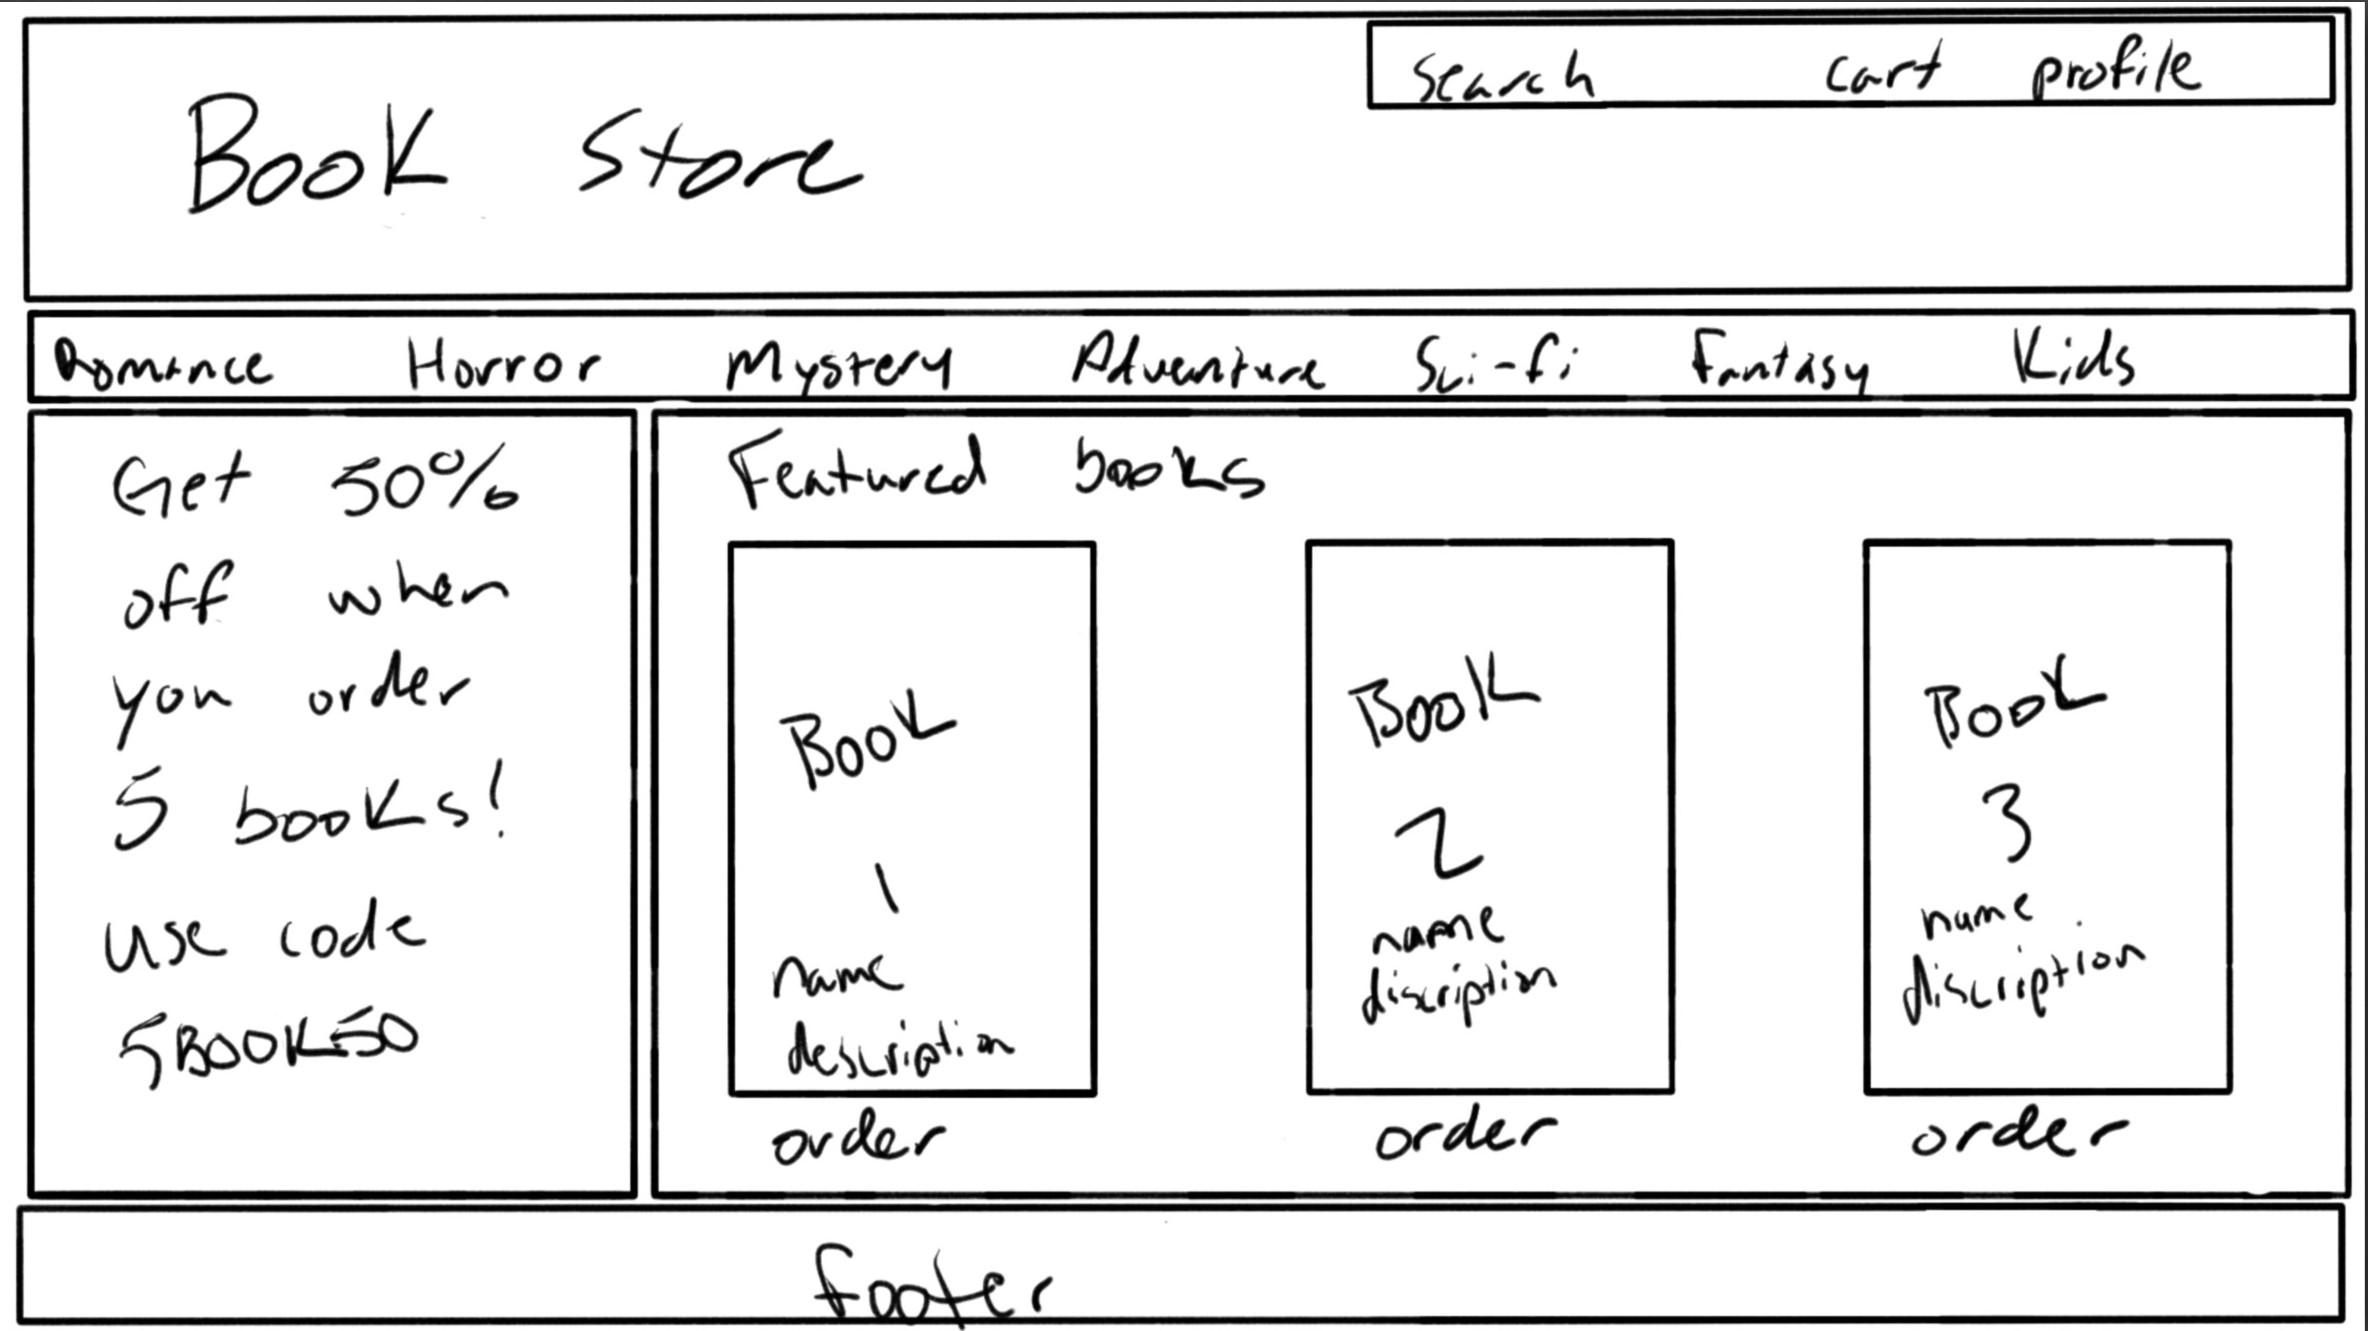 search cart profile
Book Store
Romance Horror Mystery Adventure Sci-fi Fantasy Kids
Get 50%
off when
you order
5 books!
use code
5BOOK50
Featured books
Book
1
name
description
order
Book
2
name
discription
order
Book
3
name
discription
order
footer